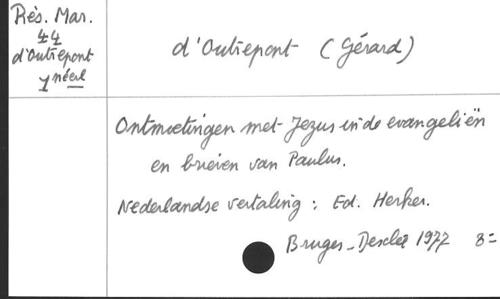 Rès. Mar.
44
d'Outrepont
1 néerl
d'Outrepont (Gérard)
Ontmoetingen met Jezus in de evangeliën
en brieven van Paulus.
Nederlandse vertaling : Ed. Herkes.
Bruges - Desclée 1977 8=